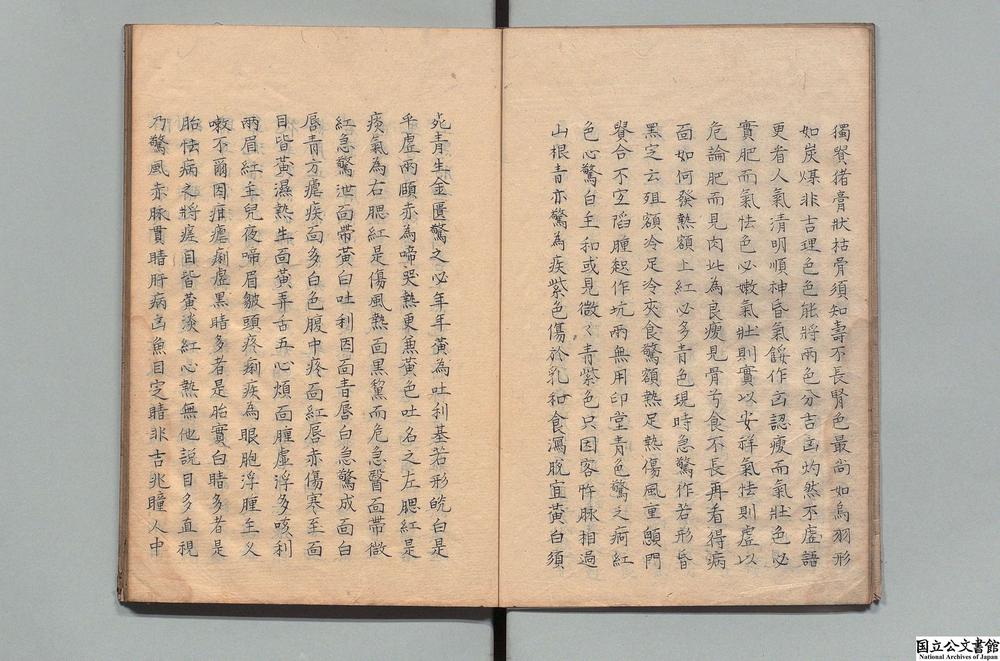 獨賢猪膏狀枯骨須知壽不長腎色最尚如烏羽形
如炭煤非吉理色色能將兩色分吉凶灼然不虛語
更看人氣清明順神昏氣餒作凶認瘦而氣壯色必
實肥而氣怯色必嫩氣壯則實以安祥氣怯則虛以
危論肥而見肉此為良瘦見骨兮食不長再看得病
面如何發熱額上紅必多青色現時急驚作若形昏
黑定云殂額冷足冷夾食驚額熱足熱傷風重顖門
腎合不宜陷腫起作坑兩無用印堂青色驚之疴紅
色心驚白主和或見微々青紫色只因客忤脉相過
山根青亦驚為疾紫色傷於乳和食瀉脫宜黃白須
兆青生金匱驚之必年年黃為吐利基若形皖白是
乎虛兩頤赤為啼哭熱更兼黃色吐名之左腮紅是
痰氣為右腮紅是傷風熱面黑黧而危急醫面帶微
紅急驚泄面帶黃白吐利因面青唇白急驚成面白
唇青方瘧疾面多白色腹中疼面紅唇赤傷寒至面
目皆黃濕熱生面黃弄舌五心煩面腫虛浮多咳利
兩眉紅主兒夜啼眉皺頭疼痢疾為眼胞浮腫主乂
嗽不爾因疳瘧痢虛黑睛多者是胎實白睛多者是
胎怯病之將瘥目皆黃淡紅心熱無他説目多直視
乃驚風赤脉貫睛肝病凶魚目定睛非吉兆瞳人中
国立公文書館
National Archives of Japan